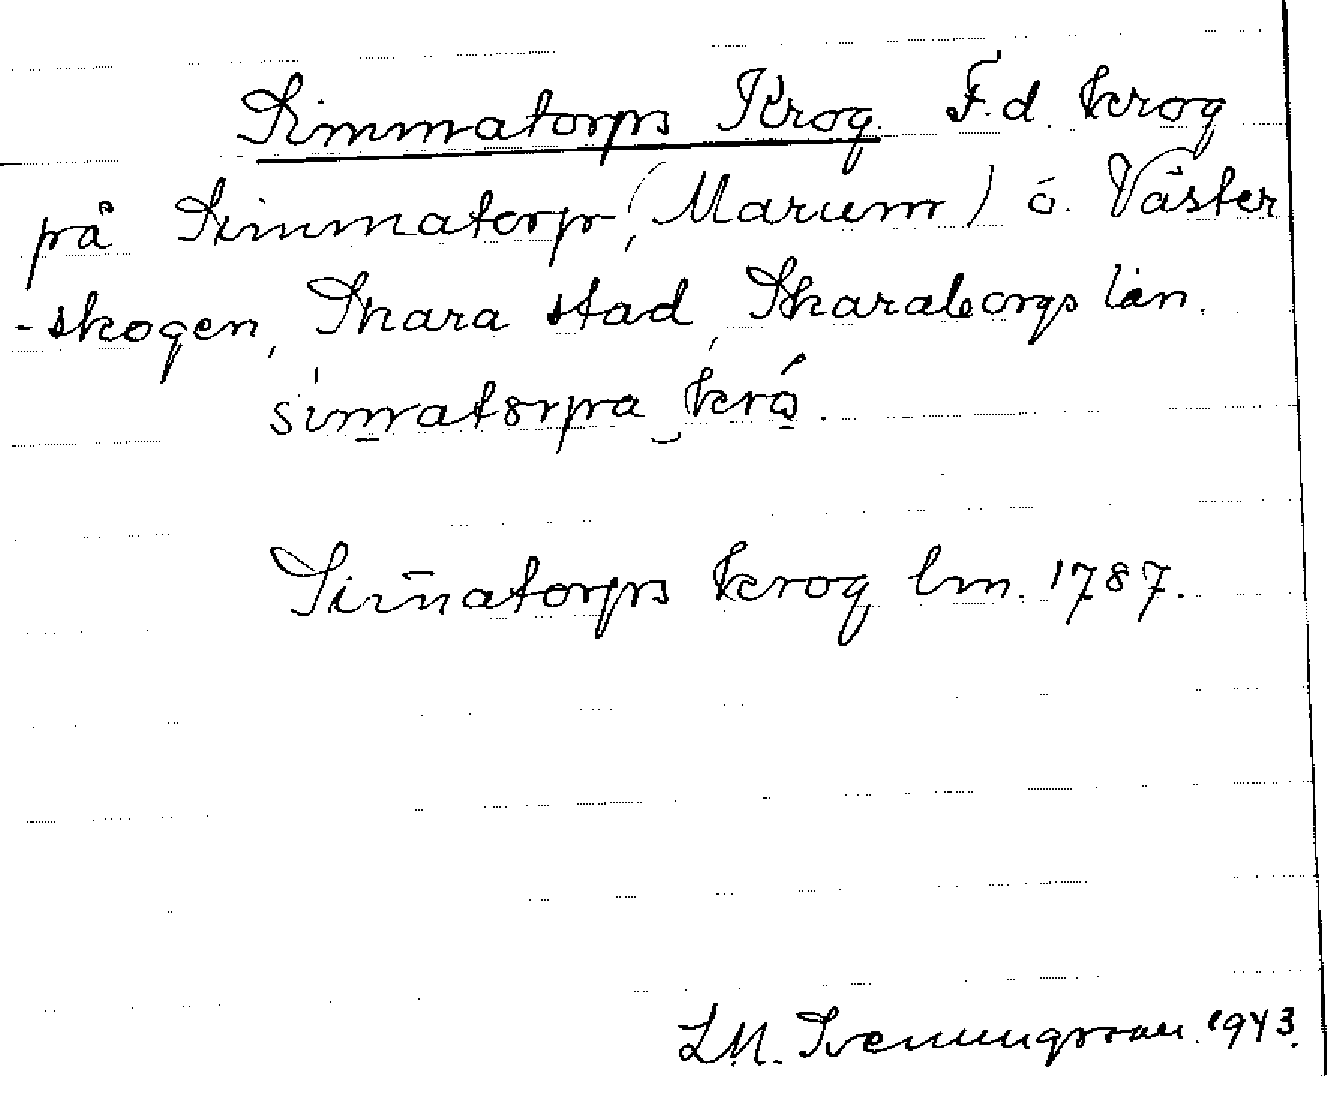 Simmatorps Krog. F.d. krog
på Simmatorp, (Marum) ó. Väster
-skogen, Skara stad, Skaraborgs län.
simatorpa krå.
Sim̄atorps krog lm. 1787.
L.M. Svenungsson 1943.